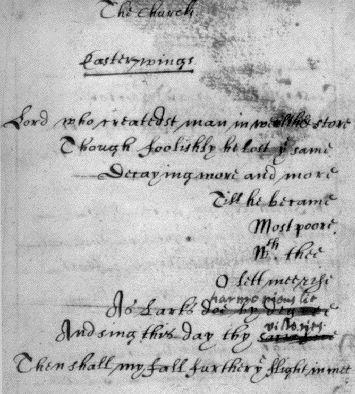 The Church
Easter wings
Lord who createdst man in wealth & store
Though foolishly he lost yͤ same
Decaying more and more
Till he became
Most poore
Wᵗʰ thee
O lett mee rise
harmoniouslie
As Larks doe by degree
victories
And sing this day thy
Then shall my fall further yͤ flight in mee